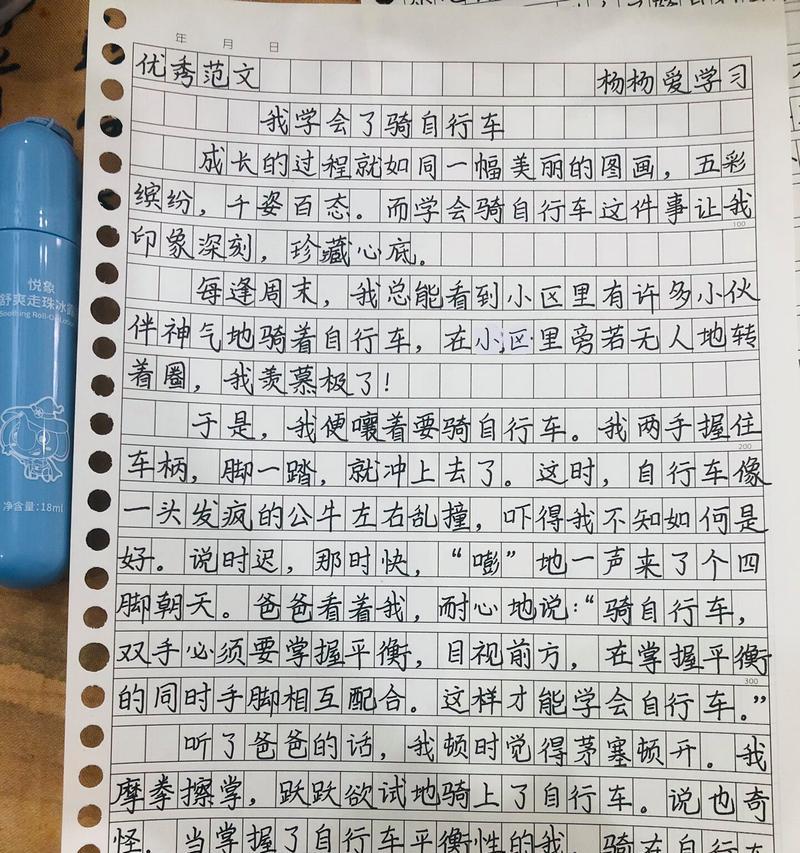 年 月 日
优秀范文 杨杨爱学习
我学会了骑自行车
成长的过程就如同一幅美丽的图画，五彩
缤纷，千姿百态。而学会骑自行车这件事让我
100
印象深刻，珍藏心底。
每逢周末，我总能看到小区里有许多小伙
伴神气地骑着自行车，在小区里旁若无人地转
着圈，我羡慕极了！
于是，我便嚷着要骑自行车。我两手握住
200
车柄，脚一踏，就冲上去了。这时，自行车像
一头发疯的公牛左右乱撞，吓得我不知如何是
好。说时迟，那时快，“嘭”地一声来了个四
脚朝天。爸爸看着我，耐心地说：“骑自行车，
双手必须要掌握平衡，目视前方，在掌握平衡
300
的同时手脚相互配合。这样才能学会自行车。”
听了爸爸的话，我顿时觉得茅塞顿开。我
摩拳擦掌，跃跃欲试地骑上了自行车。说也奇
怪，当掌握了自行车平衡性的我，骑在自行车
悦象
舒爽走珠冰露
Soothing Roll-On
净含量：18ml